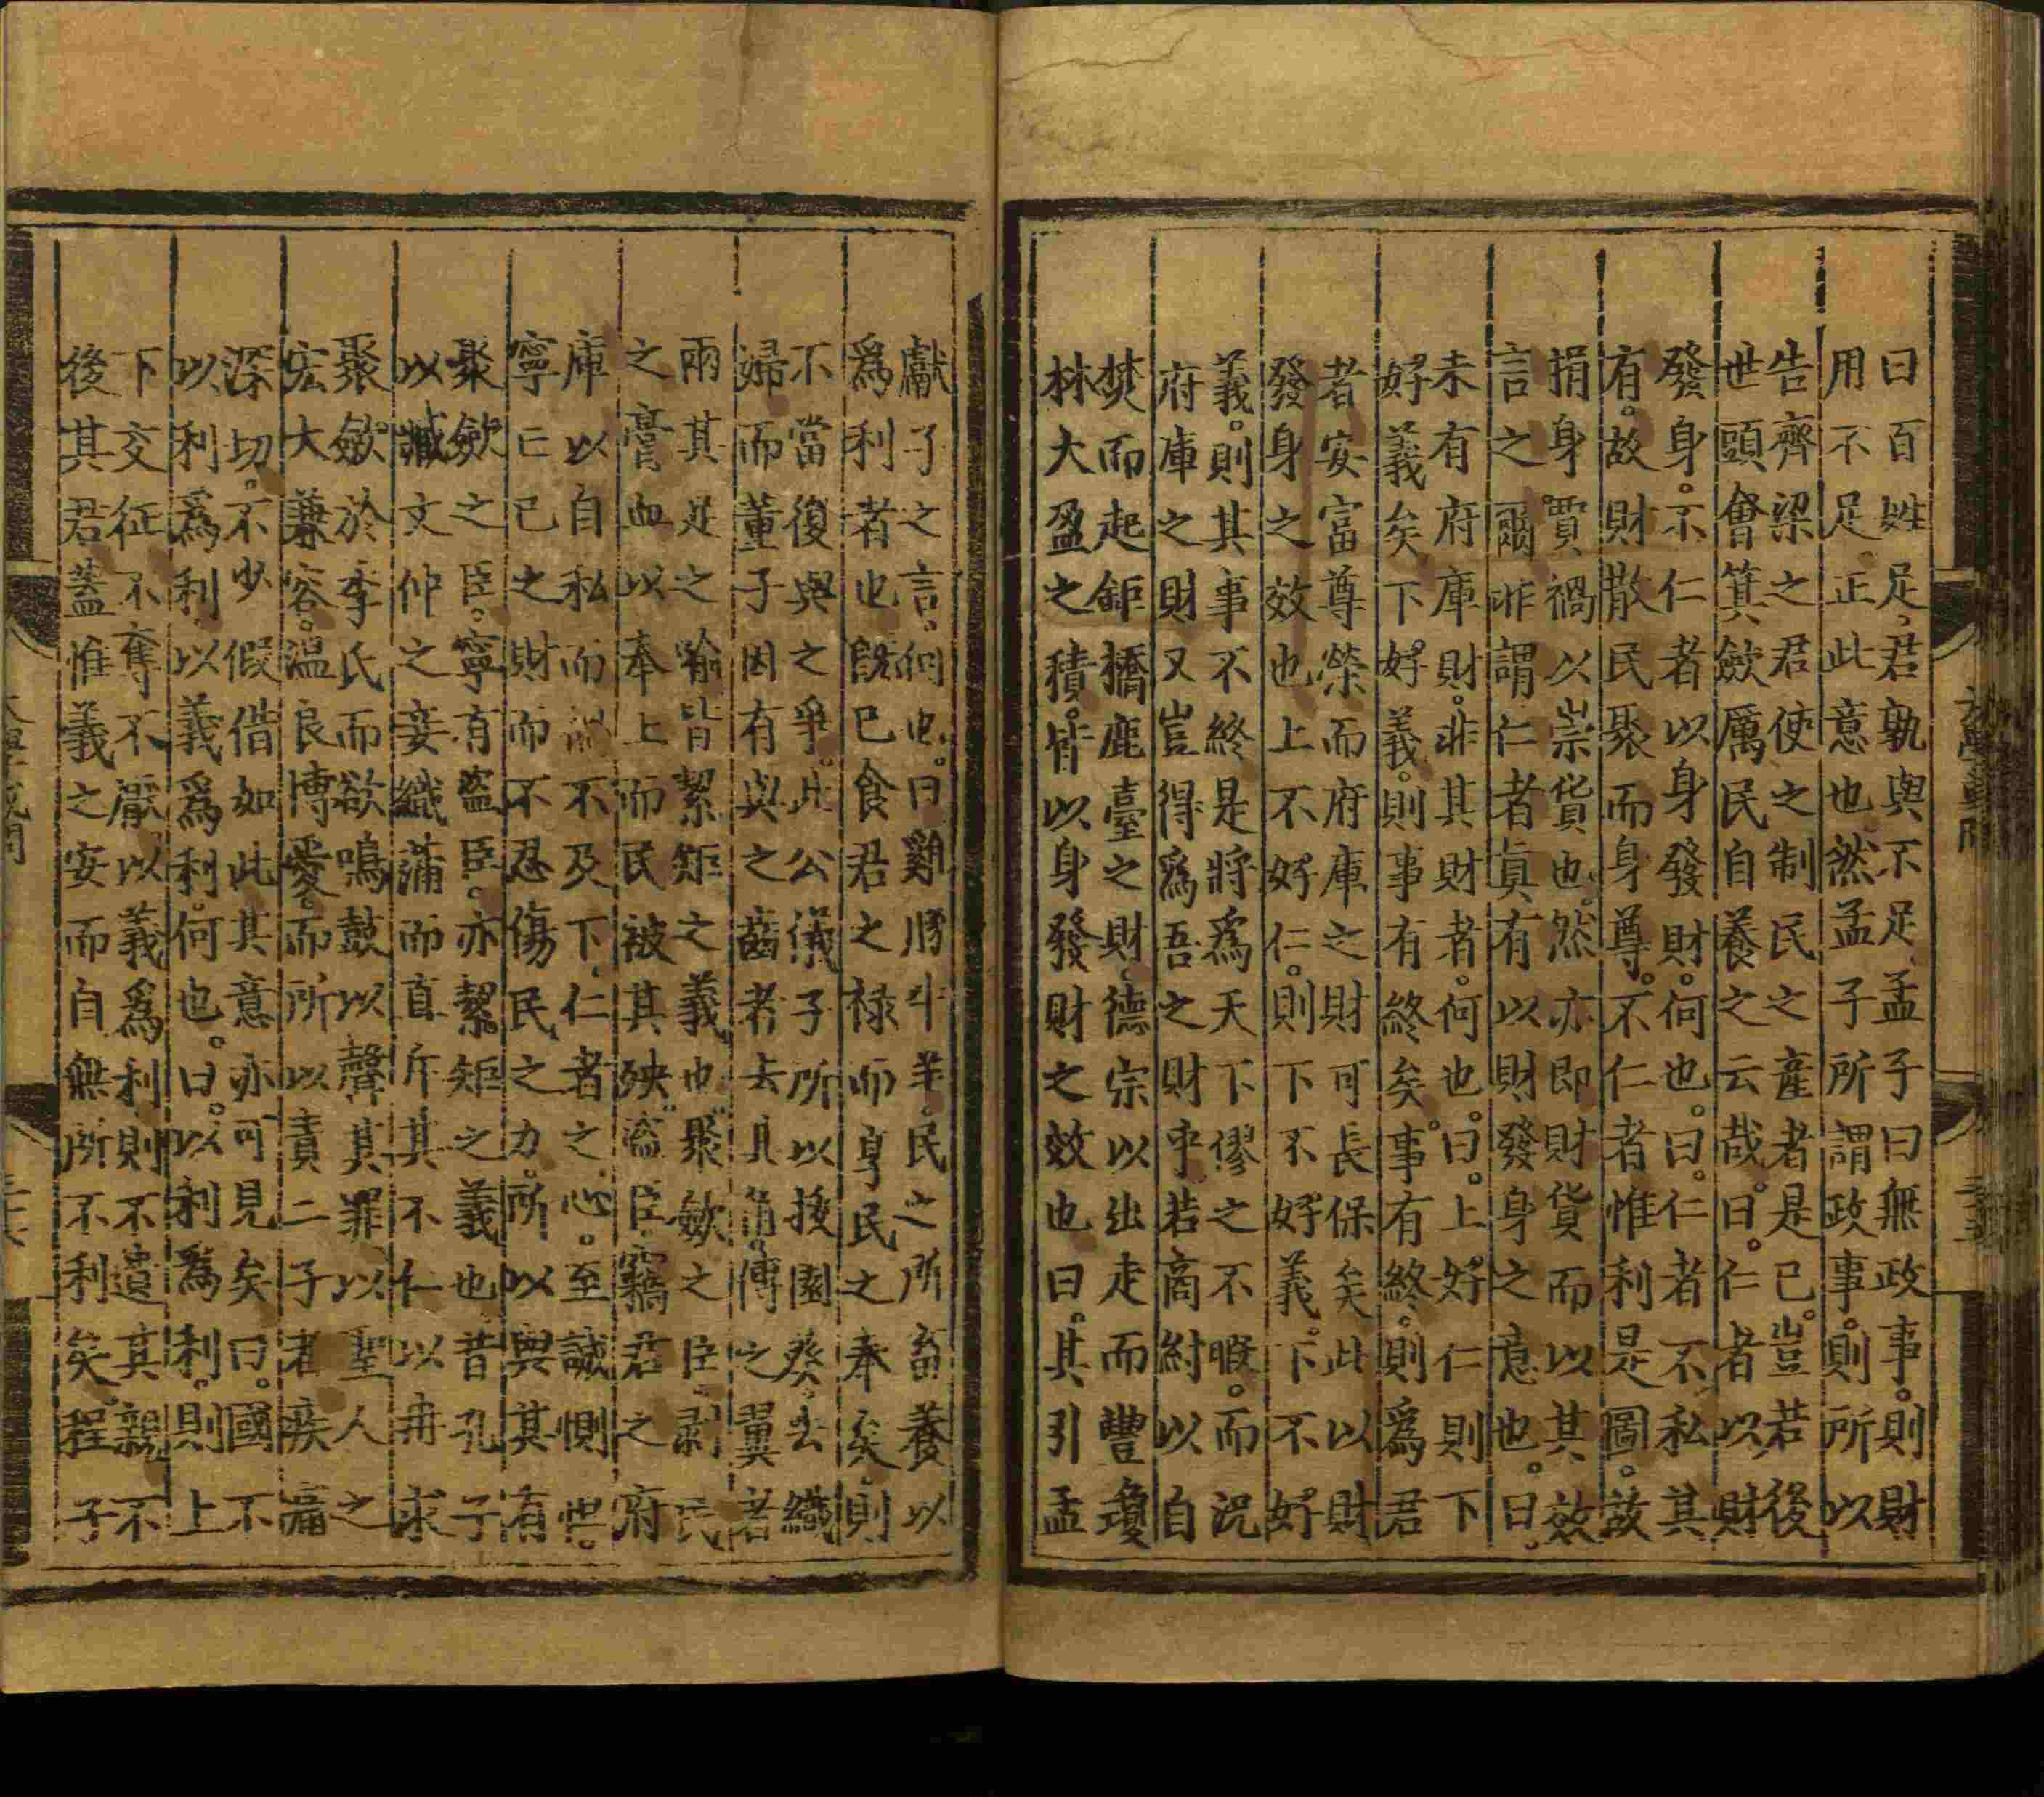 曰百姓足君孰與不足孟子曰無政事。則財
用不足正此意也然孟子所謂政事則所以
告齊梁之君使之制民之產者是已。豈若後
世頭會箕斂厲民自養之云哉。曰。仁者以財
發身。不仁者以身發財。何也。曰。仁者不私其
有。故財散民聚而身尊。不仁者惟利是圖。故
捐身賈禍以崇貨也。然亦即財貨而以其效
言之爾非謂仁者真有以財發身之意也。曰。
未有府庫財。非其財者。何也。曰。上好仁則下
好義矣下好義。則事有終矣。事有終。則為君
者安富尊榮而府庫之財可長保矣此以財
發身之效也上不好仁。則下不好義。下不好
義。則其事不終是將為天下僇之不暇。而況
府庫之財又豈得為吾之財乎若商紂以自
焚而起鉅橋鹿臺之財德宗以出走而豐瓊
林大盈之積。皆以身發財之效也曰。其引孟
獻子之言。何也。曰雞豚牛羊。民之所畜養以
為利者也既已食君之祿而享民之奉矣。則
不當復與之爭。此公儀子所以拔園葵。去織
婦而董子因有與之齒者去其角。傅之翼者
兩其足之喻皆絜矩之義也聚斂之臣剥民
之膏血以奉上而民被其殃盜臣竊君之府
庫以自私而禍不及下仁者之心。至誠惻怛。
寧亡己之財而不忍傷民之力。所以與其有
聚斂之臣。寧有盜臣。亦絜矩之義也昔孔子
以臧文仲之妾織蒲而直斥其不仁以冉求
聚斂於季氏而欲鳴鼓以聲其罪以聖人之
宏大兼容。溫良博愛。而所以責二子者疾痛
深切。不少假借如此其意亦可見矣曰。國不
以利為利以義為利。何也。曰。以利為利。則上
下交征不奪不厭以義為利則不遺其親不
後其君蓋惟義之安而自無所不利矣。程子